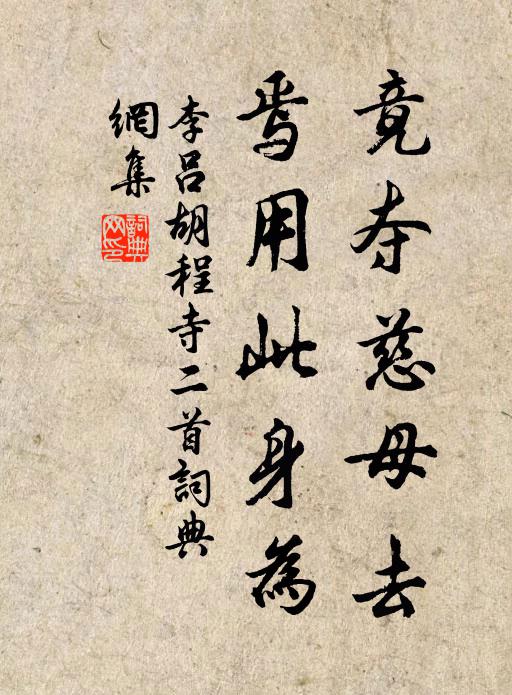 竟夺慈母去
焉用此身為
李吕胡程寺二首詞典
網集
詞典
网印